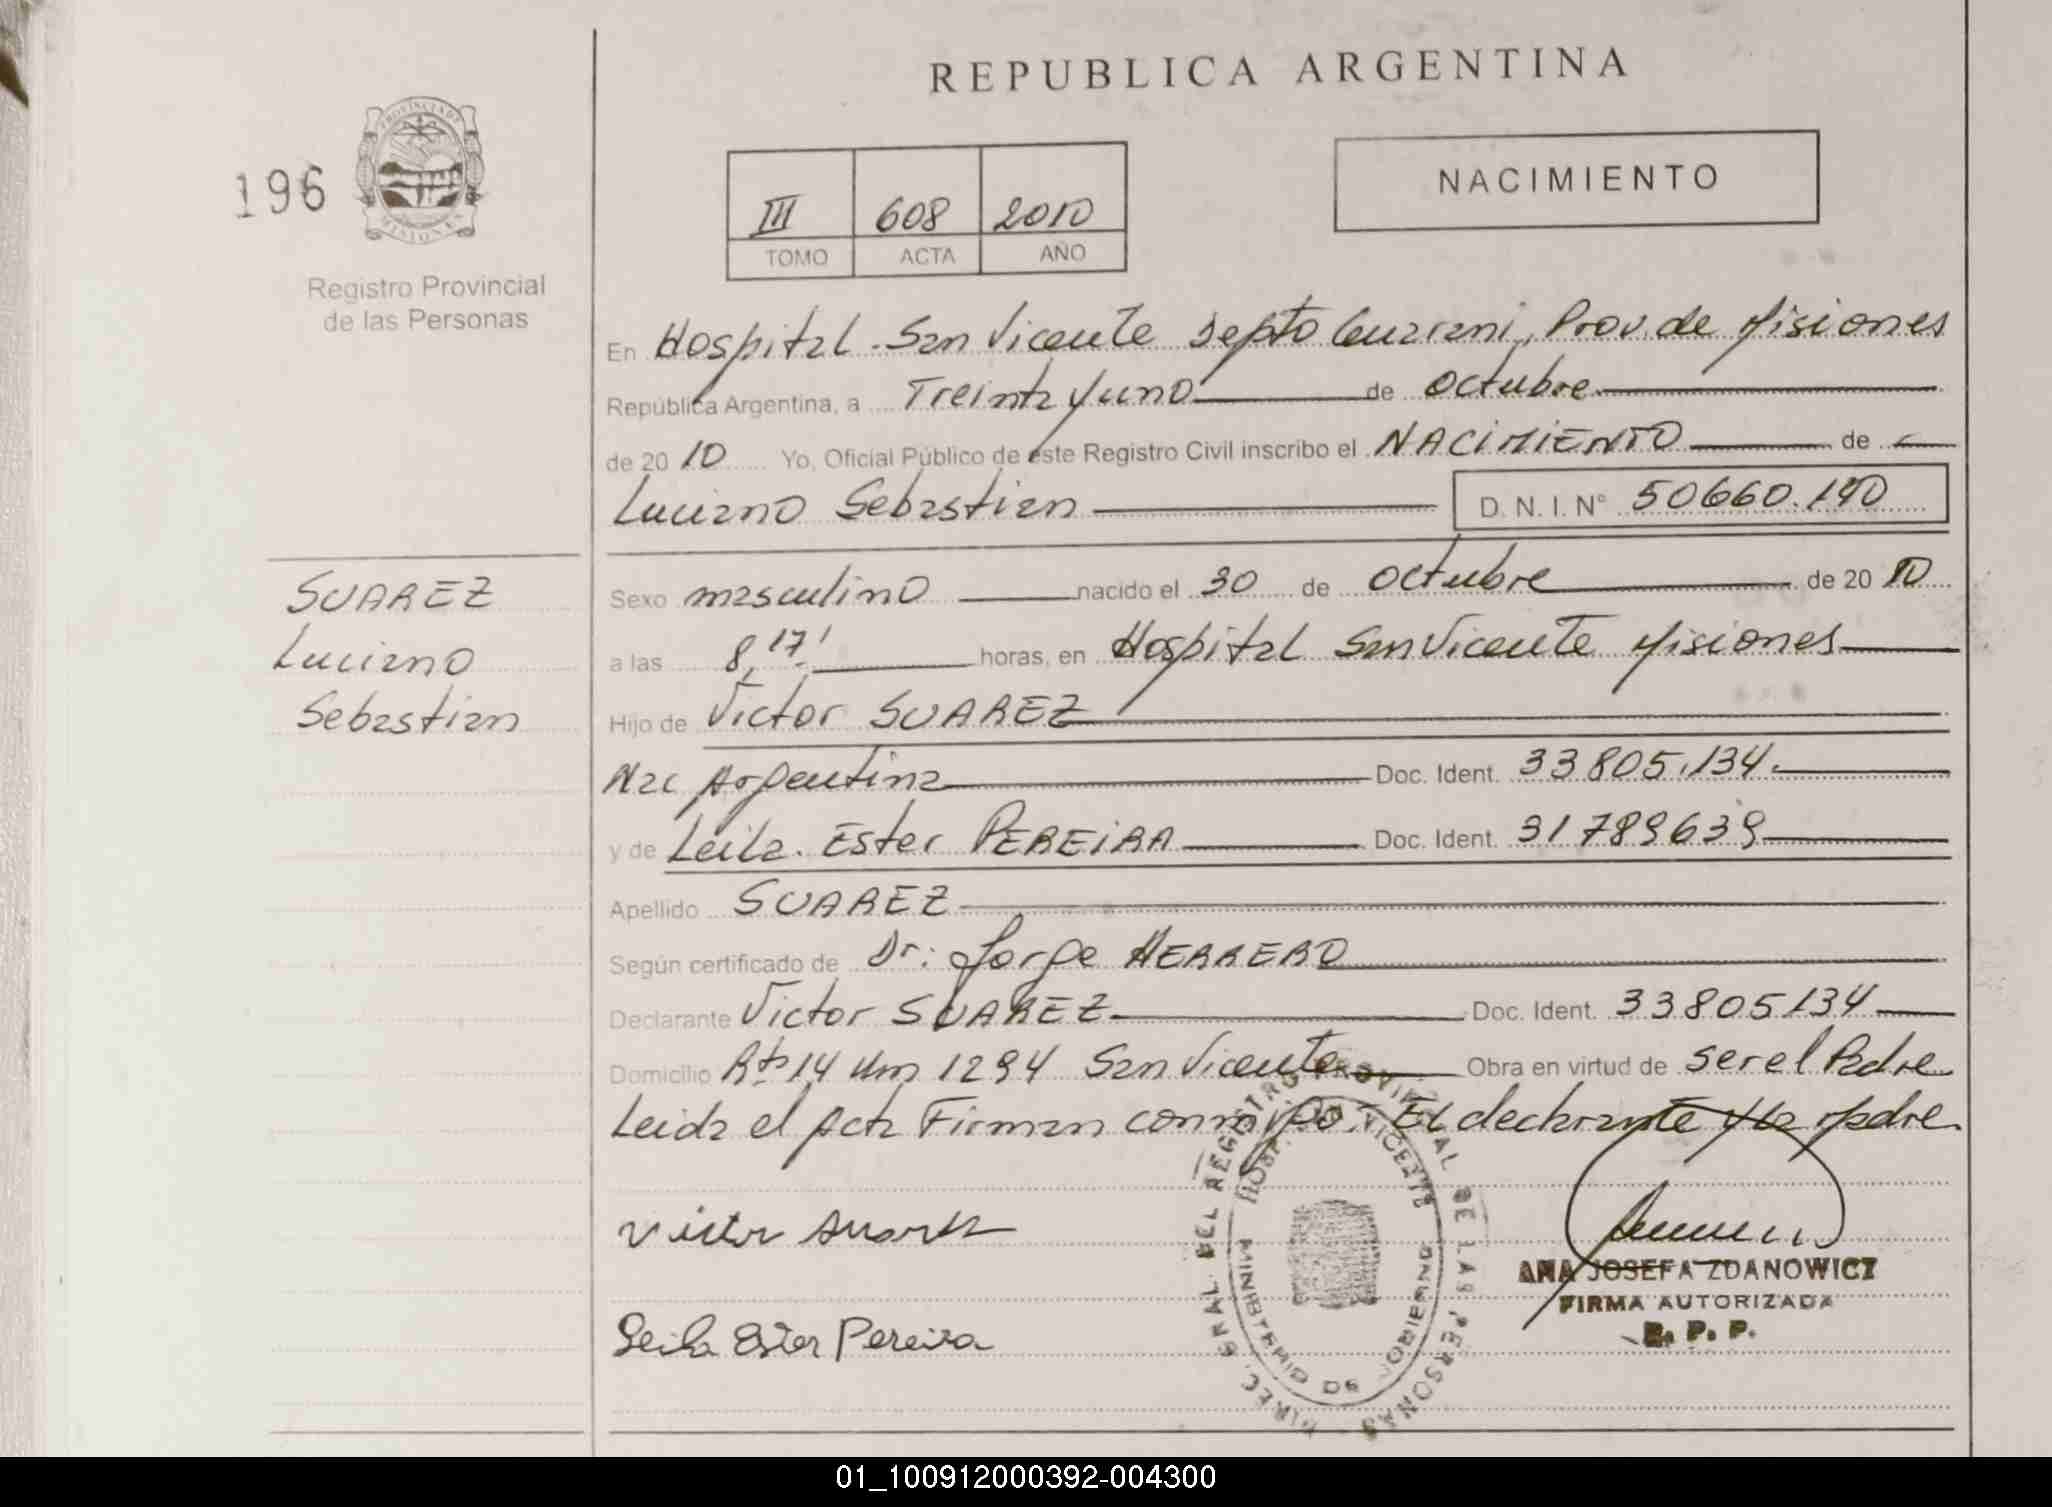 REPUBLICA ARGENTINA
196
PROVINCIA DE
MISIONES
Registro Provincial
de las Personas
III 608 2010
TOMO ACTA AÑO
NACIMIENTO
En Hospital San Vicente Depto Guarani, Prov. de Misiones
República Argentina, a Treinta y uno de octubre
de 2010 Yo, Oficial Público de este Registro Civil inscribo el NACIMIENTO de
Luciano Sebastian D. N. I. N° 50660.190
SUAREZ
Luciano
Sebastian
Sexo masculino nacido el 30 de octubre de 2010
a las 8,17' horas, en Hospital San Vicente Misiones
Hijo de Victor SUAREZ
Nac Argentina Doc. Ident. 33805.134.
y de Leila Ester PEREIRA Doc. Ident. 31789639
Apellido SUAREZ
Según certificado de Dr: Jorge HERRERO
Declarante Victor SUAREZ Doc. Ident. 33805134
Domicilio Rta 14 Km 1294 San Vicente Obra en virtud de ser el Padre
Leida el Acta Firman conmigo. El declarante y la Madre.
Victor Suarez
Leila Ester Pereira
DIREC. GRAL. DEL REGISTRO PROVINCIAL DE LAS PERSONAS
HOSP. VICENTE
MINISTERIO DE GOBIERNO
ANA JOSEFA ZDANOWICZ
FIRMA AUTORIZADA
R. P. P.
01_100912000392-004300